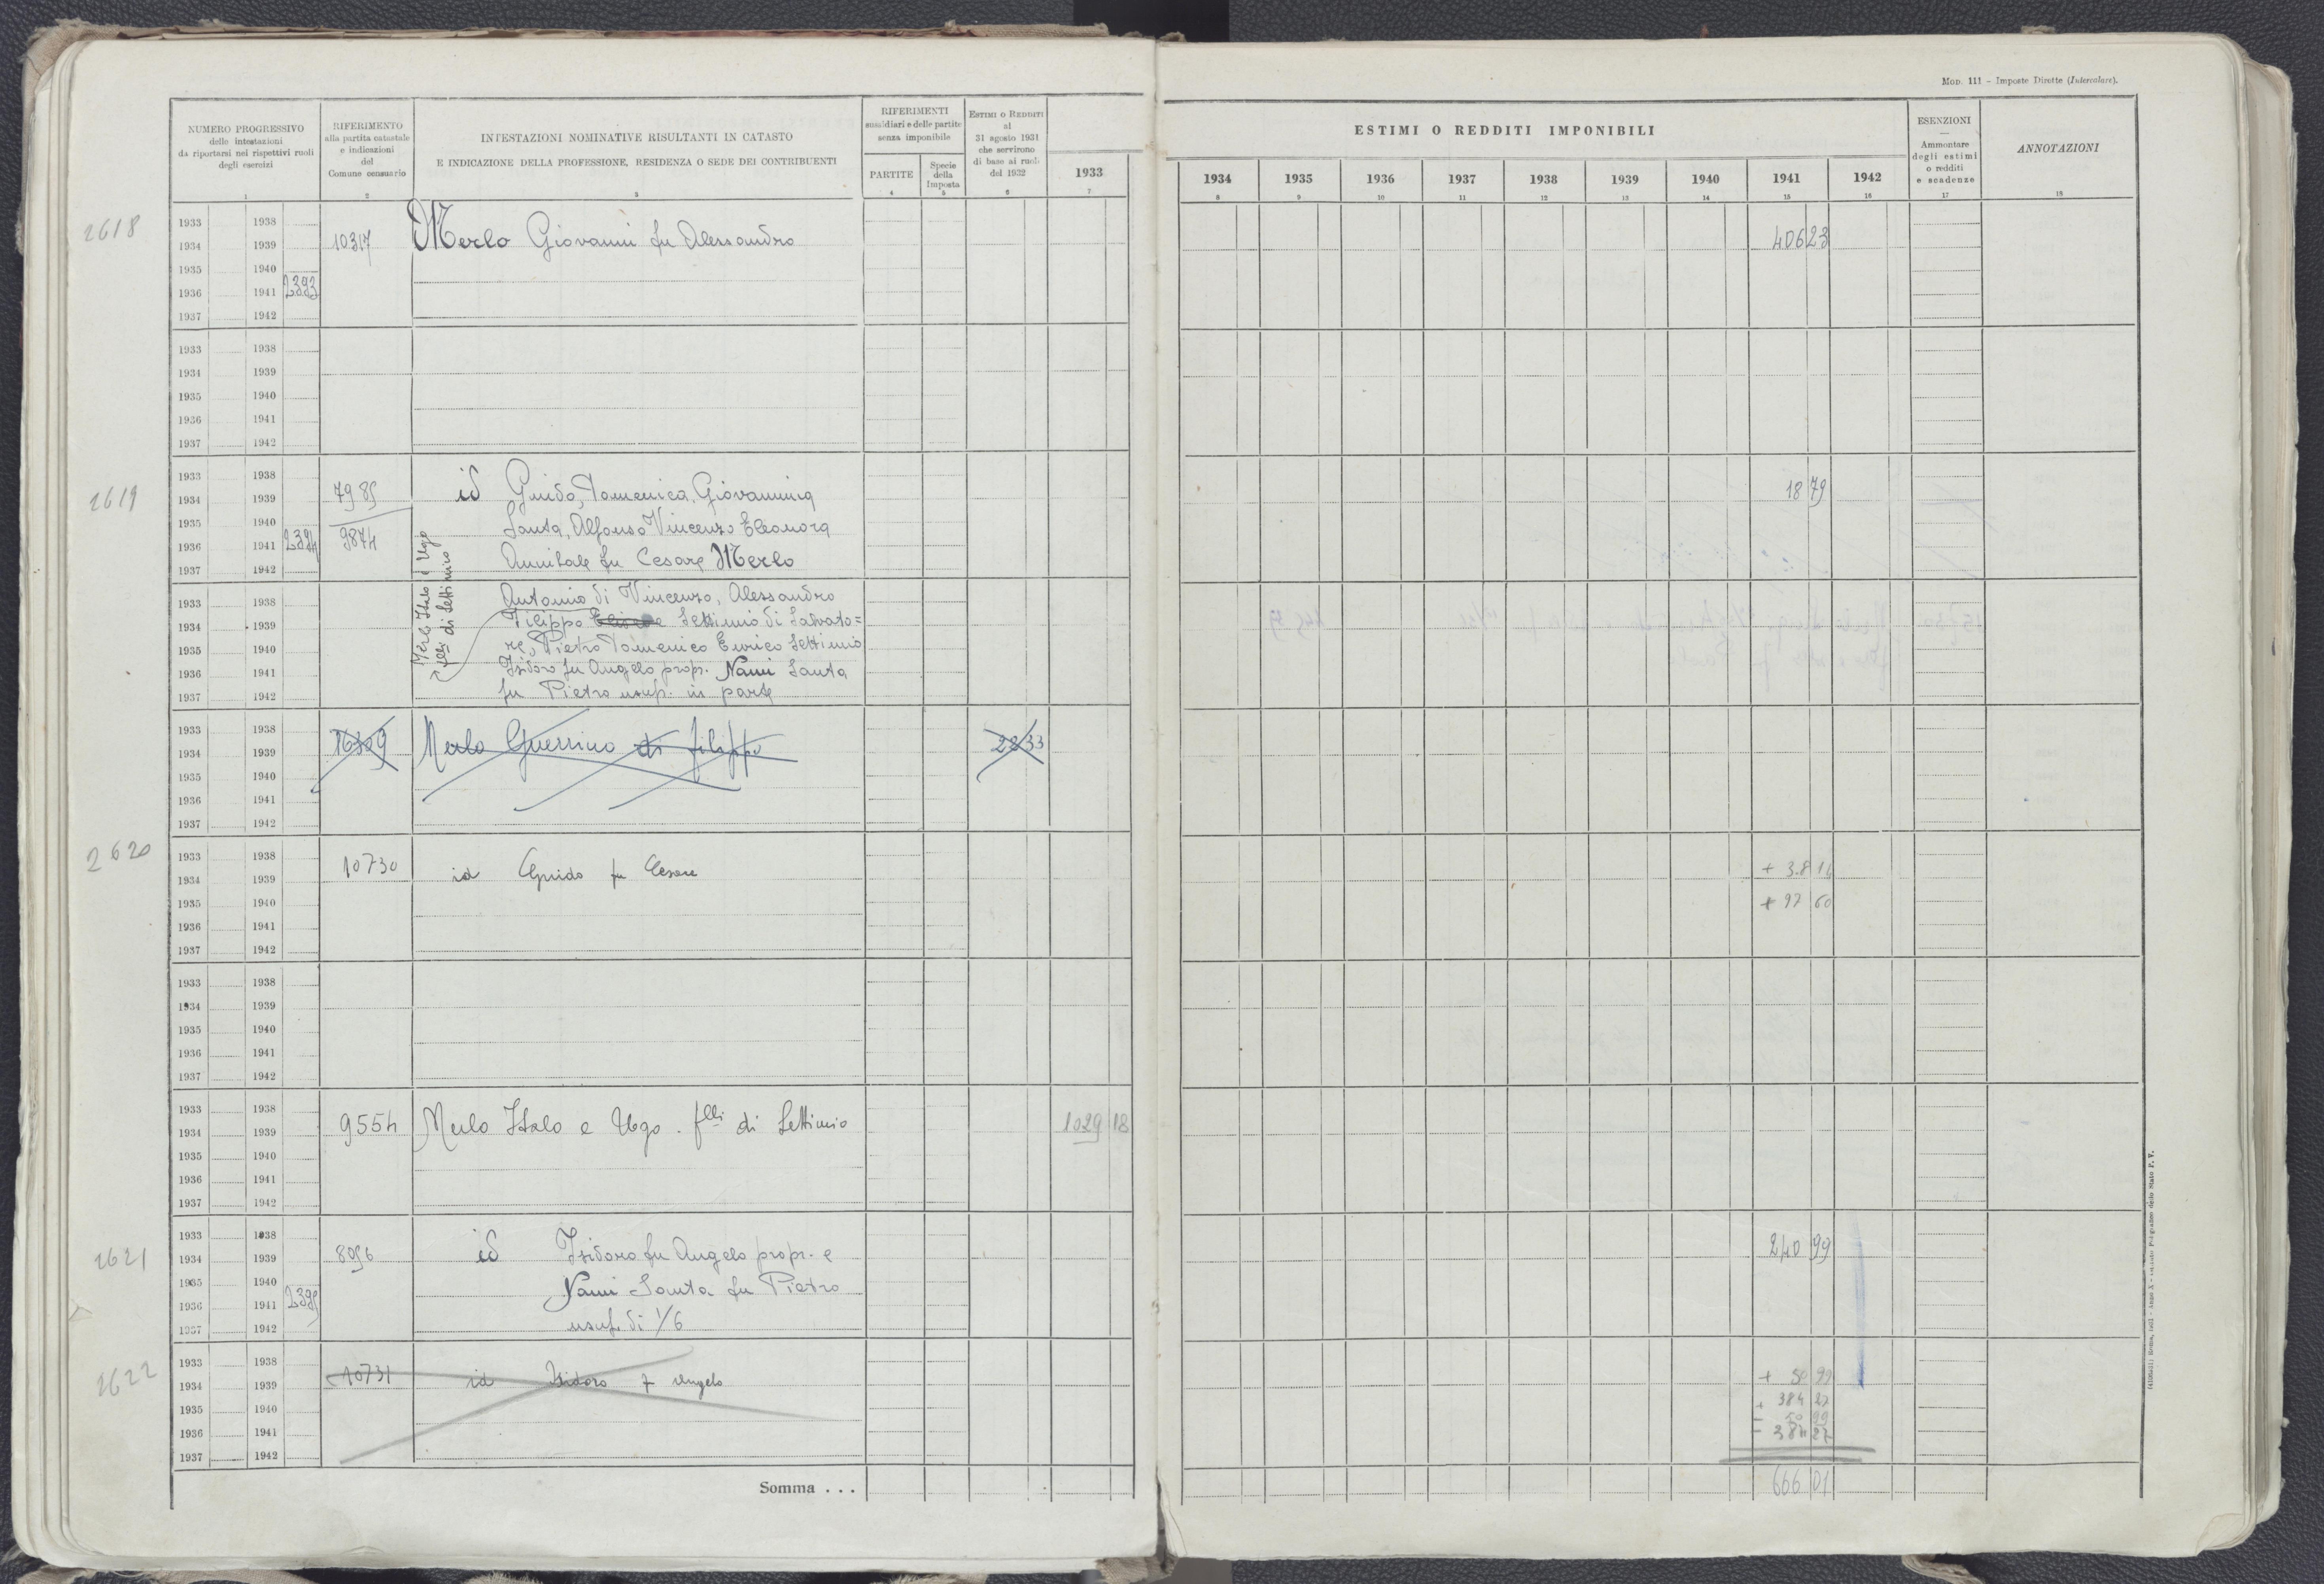 MOD. 111 - Imposte Dirette (Intercalare).
NUMERO PROGRESSIVO
delle intestazioni
da riportarsi nei rispettivi ruoli
degli esercizi
1
RIFERIMENTO
alla partita catastale
e indicazioni
del
Comune censuario
2
INTESTAZIONI NOMINATIVE RISULTANTI IN CATASTO
E INDICAZIONE DELLA PROFESSIONE, RESIDENZA O SEDE DEI CONTRIBUENTI
3
RIFERIMENTI
sussidiari e delle partite
senza imponibile
PARTITE
4
Specie
della
Imposta
5
ESTIMI O REDDITI
al
31 agosto 1931
che servirono
di base ai ruoli
del 1932
6
1933
7
ESTIMI O REDDITI IMPONIBILI
1934 1935 1936 1937 1938 1939 1940 1941 1942
8 9 10 11 12 13 14 15 16
ESENZIONI
Ammontare
degli estimi
o redditi
e scadenze
17
ANNOTAZIONI
18
2618
1933 1938
1934 1939 10317 Merlo Giovanni fu Alessandro 406 23
1935 1940
1936 1941 2393
1937 1942
1933 1938
1934 1939
1935 1940
1936 1941
1937 1942
2619
1933 1938
1934 1939 7985 id Guido, Domenica, Giovannina 18 79
1935 1940 Santa, Alfonso Vincenzo Eleonora
1936 1941 2394 9874 Annibale fu Cesare Merlo
1937 1942
Merlo Italo e Ugo
flli di Settimio
1933 1938 Antonio di Vincenzo, Alessandro
1934 1939 Filippo e Settimio di Salvato=
1935 1940 re, Pietro Domenico Enrico Settimio
1936 1941 Isidoro fu Angelo propr. Nami Santa
1937 1942 fu Pietro usuf. in parte
1933 1938
1934 1939 Merlo Guerrino di Filippo 22 33
1935 1940
1936 1941
1937 1942
2620
1933 1938
1934 1939 10730 id Guido fu Cesare + 38 14
1935 1940 + 92 60
1936 1941
1937 1942
1933 1938
1934 1939
1935 1940
1936 1941
1937 1942
1933 1938
1934 1939 9554 Merlo Italo e Ugo. flli di Settimio 1029 18
1935 1940
1936 1941
1937 1942
2621
1933 1938
1934 1939 8956 id Isidoro fu Angelo propr. e 240 99
1935 1940 Nami Santa fu Pietro
1936 1941 2395
1937 1942 usuf. di 1/6
2622
1933 1938
1934 1939 10731 id Isidoro f Angelo + 50 99
1935 1940 + 384 27
1936 1941 - 50 99
1937 1942 - 384 27
Somma . . . 666 01